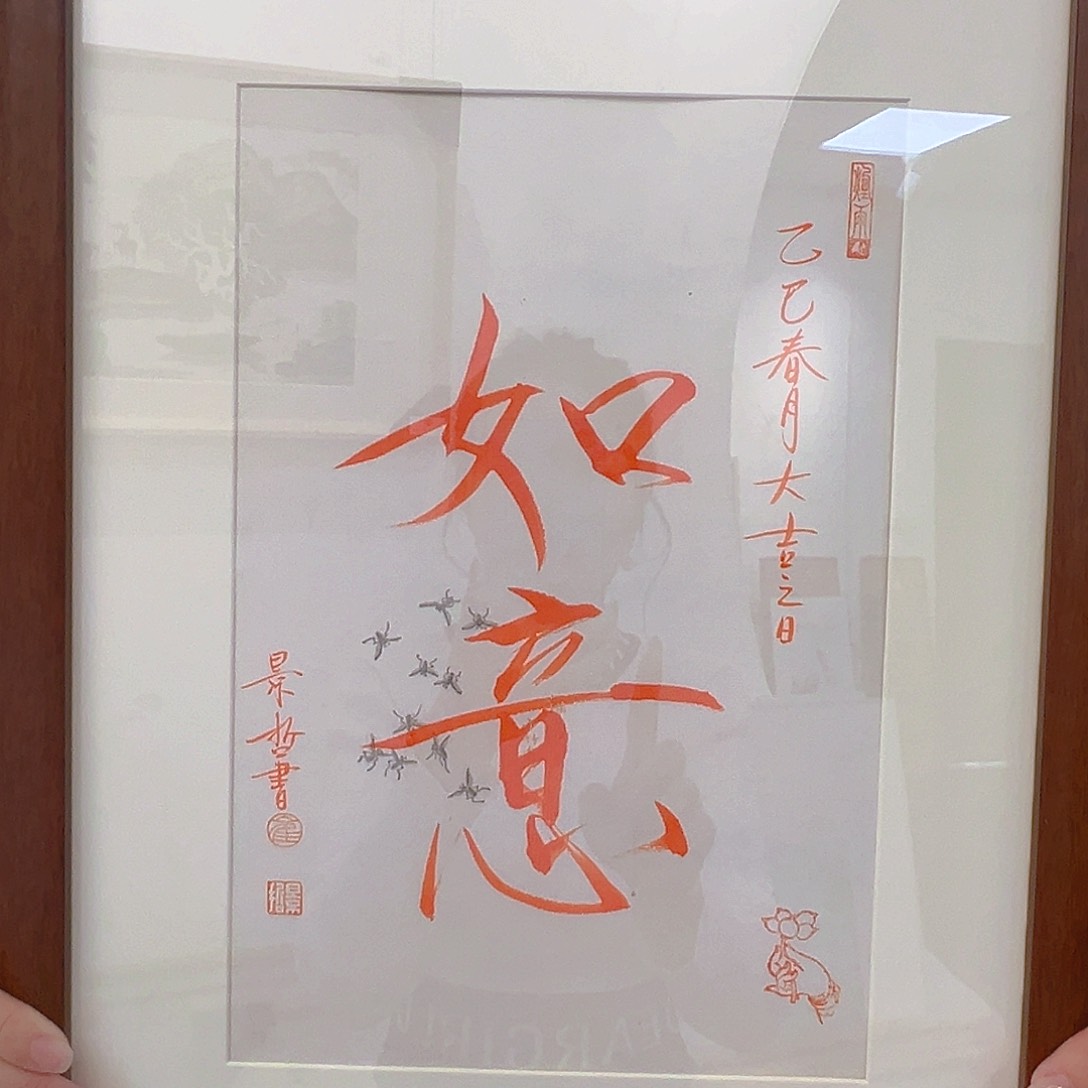 乙巳春月大吉之日
如意
景哲書